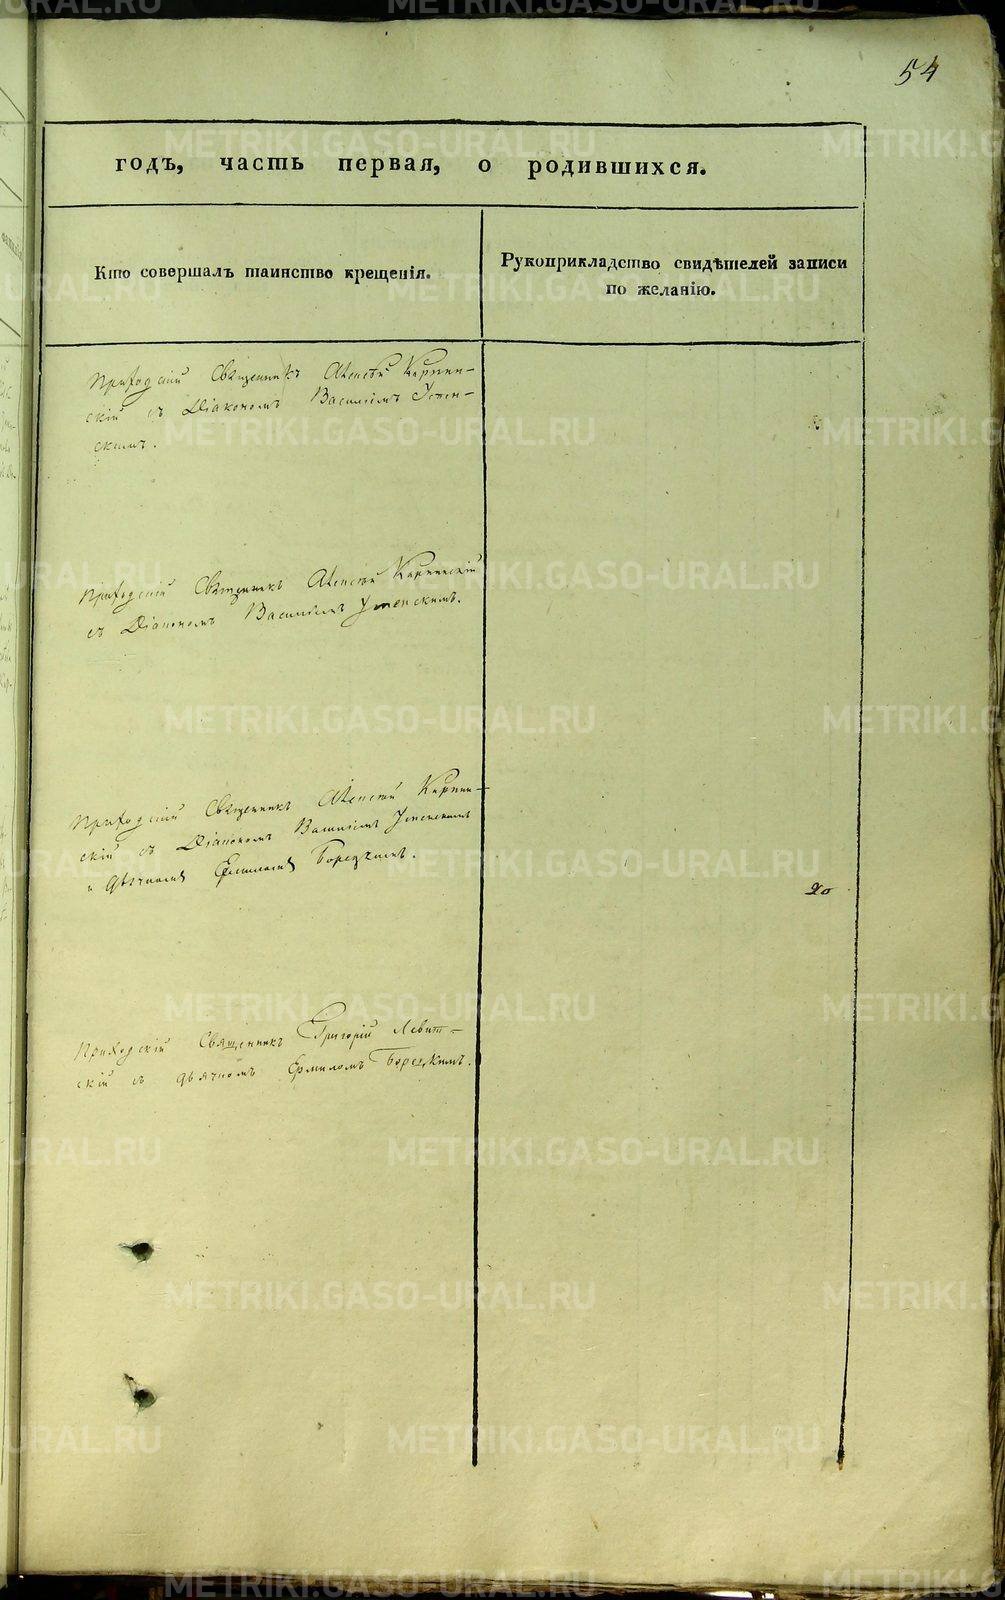 54
годъ, часть первая, о родившихся.
Кто совершалъ таинство крещенія.
Рукоприкладство свидѣтелей записи
по желанію.
Приходскій Священникъ Алексѣй Карпин-
скій съ Діакономъ Василіемъ Успен-
скимъ.
Приходскій Священникъ Алексѣй Карпинскій
съ Діакономъ Василіемъ Успенскимъ.
Приходскій Священникъ Алексѣй Карпин-
скій съ Діакономъ Василіемъ Успенскимъ
и Дьячкомъ Ермиломъ Борецкимъ.
Приходскій Священникъ Григорій Левит-
скій съ дьячкомъ Ермиломъ Борецкимъ.
METRIKI.GASO-URAL.RU